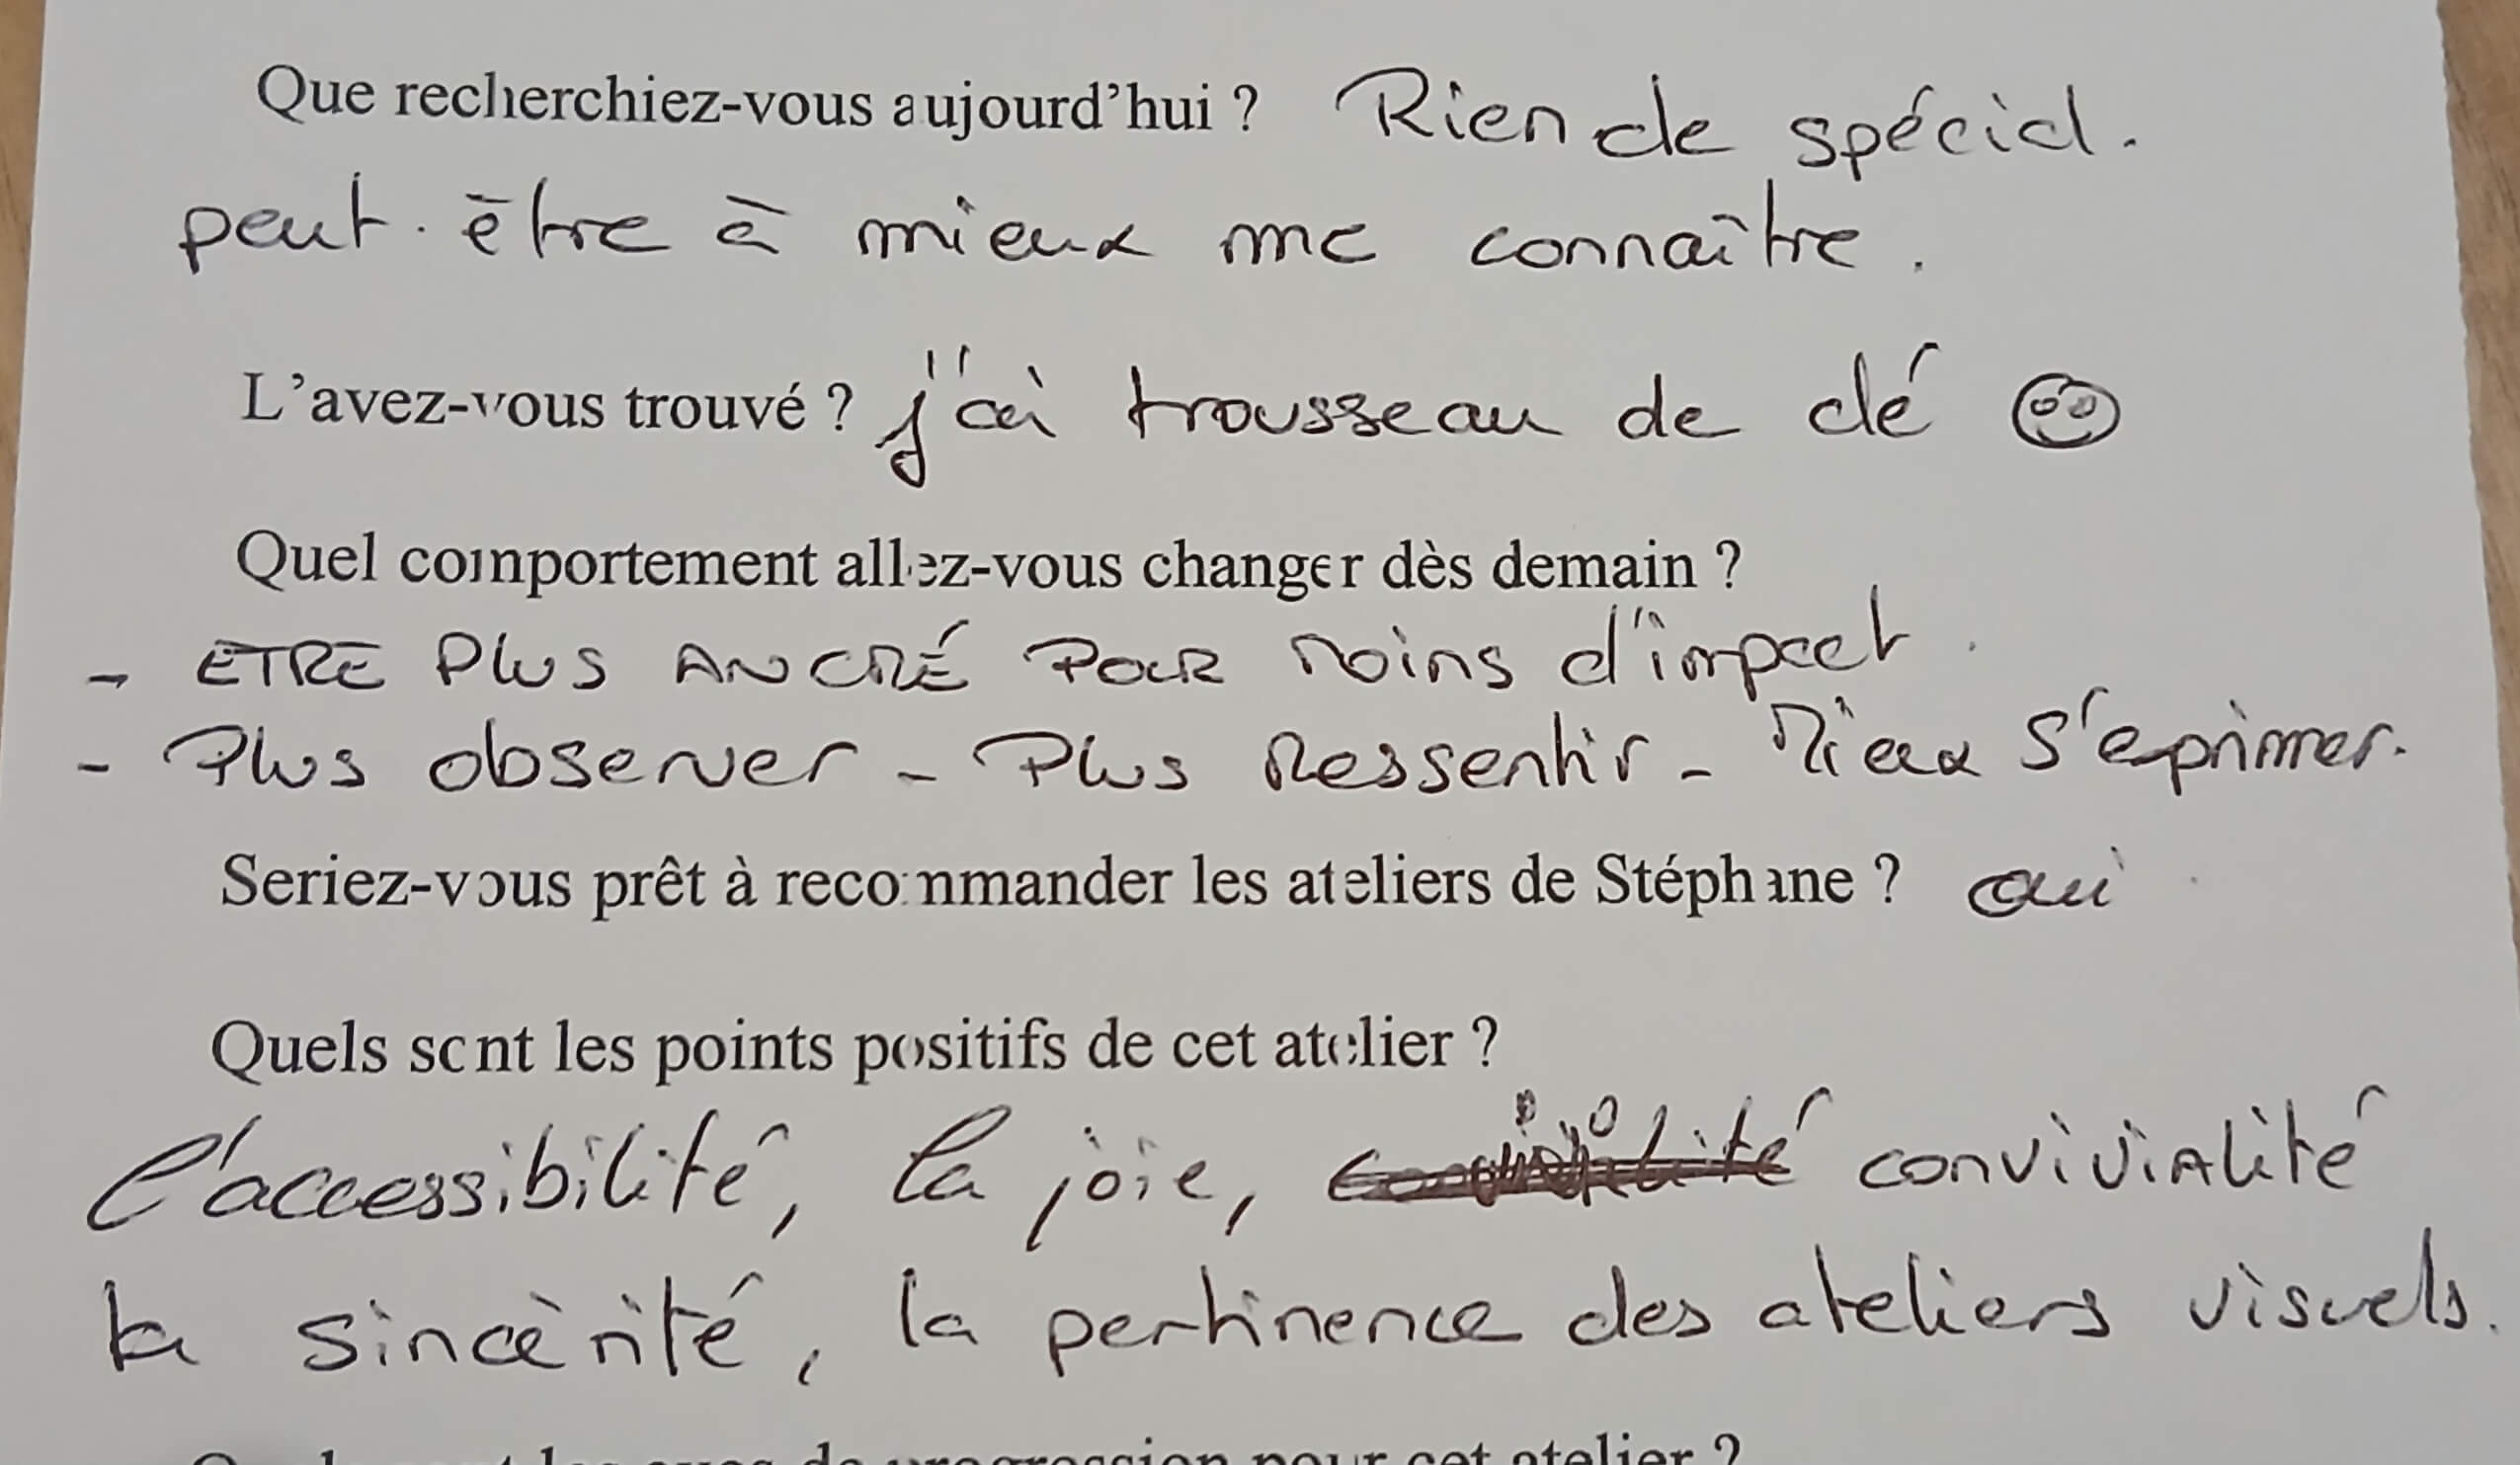 Que recherchiez-vous aujourd'hui ? Rien de spécial.
peut-être à mieux me connaître.
L'avez-vous trouvé ? j'ai trousseau de clé
Quel comportement allez-vous changer dès demain ?
- ETRE PLUS ANCRÉ POUR Moins d'impact.
- Plus observer - Plus Ressentir - Mieux s'exprimer.
Seriez-vous prêt à recommander les ateliers de Stéphane ? oui
Quels sont les points positifs de cet atelier ?
l'accessibilité, la joie, convivialité
la sincèrité, la pertinence des ateliers visuels.
progression pour cet atelier ?